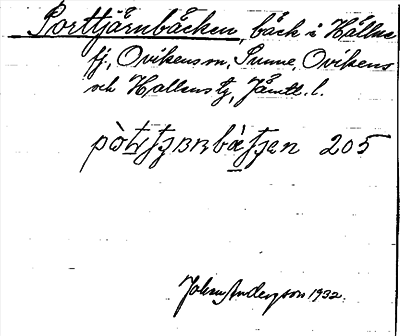 Porttjärnbäcken, bäck i Hållne
fj., Ovikens sn, Sunne, Ovikens
och Hallens tg, Jämtl. l.
205
John Anderson 1932.